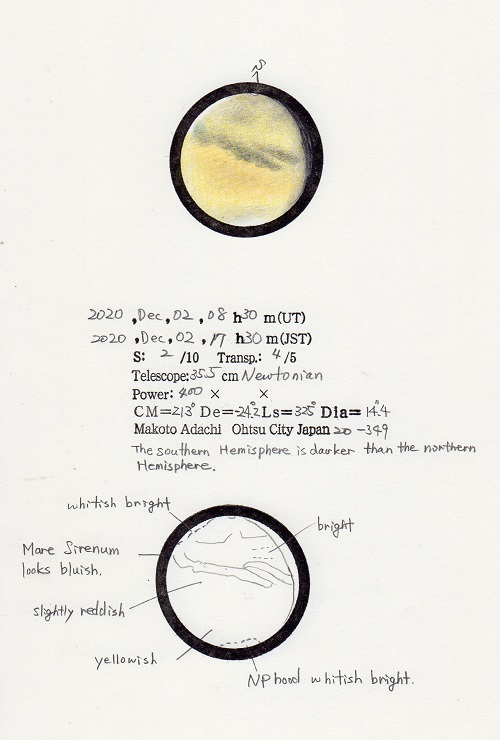 S
2020 , Dec , 02 , 08 h 30 m (UT)
2020 , Dec , 02 , 17 h 30 m (JST)
S: 2 /10 Transp.: 4 /5
Telescope: 35.5 cm Newtonian
Power: 400 × ×
CM=213° De=-24.2 Ls=325° Dia= 14".4
Makoto Adachi Ohtsu City Japan 20-349
The southern Hemisphere is darker than the northern
Hemisphere.
whitish bright
bright
Mare Sirenum
looks bluish.
slightly reddish
yellowish
NP hood whitish bright.